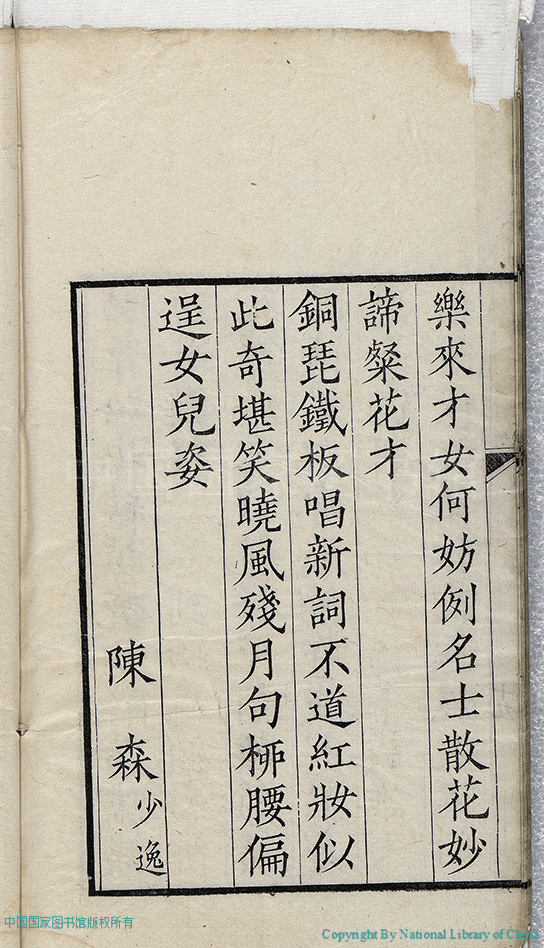 樂來才女何妨例名士散花妙
諦粲花才
銅琵鐵板唱新詞不道紅妝似
此奇堪笑曉風殘月句柳腰偏
逞女兒姿
陳森少逸
中国国家图书馆版权所有
Copyright By National Library of China